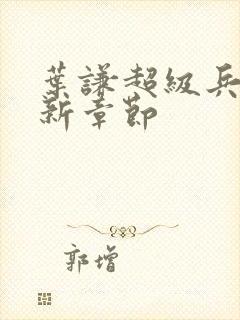 葉謙超級兵
新章節
郭增